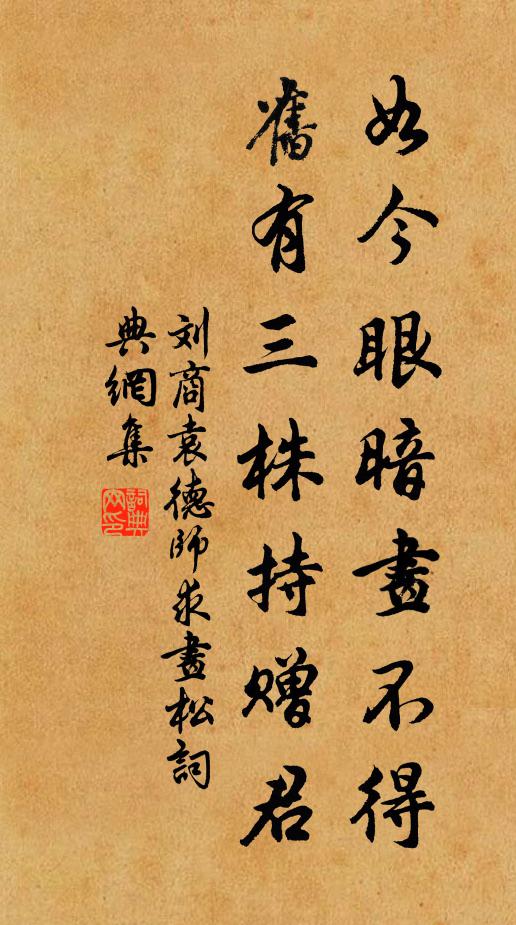 如今眼暗畫不得
舊有三株持赠君
刘商袁德師求畫松詞
典網集
詞典網印